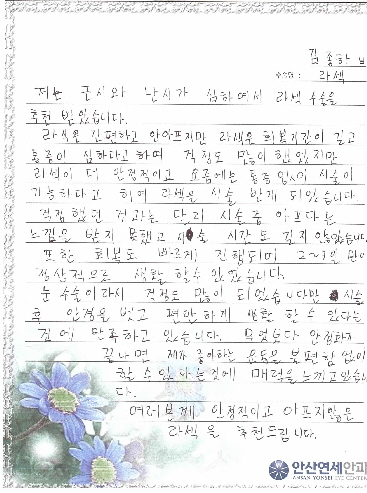 김종하 님
수술명: 라섹
저는 근시와 난시가 심하여서 라섹 수술을
추천 받았습니다.
라식은 간편하고 안아프지만 라섹은 회복기간이 길고
통증이 심하다고 하여 걱정도 많이 했었지만
라섹이 더 안정적이고 요즘에는 통증 없이 시술이
가능하다고 하여 라섹을 시술 받게 되었습니다.
걱정했던 것과는 달리 시술중 아프다는
느낌을 받지 못했고 시술 시간도 길지 않았습니다.
또한 회복도 빠르게 진행되어 2~3일 만에
정상적으로 생활 할수 있었습니다.
눈 수술이라서 걱정도 많이 되었습니다만 시술
후 안경을 벗고 편안하게 생활 할 수 있다는
점에 만족하고 있습니다. 무엇보다 안정화가
끝나면 제가 좋아하는 운동을 불편함 없이
할 수 있다는 것에 매력을 느끼고 있습니
다.
여러분께 안정적이고 아프지않은
라섹을 추천드립니다.
안산연세안과
ANSAN YONSEI EYE CENTER